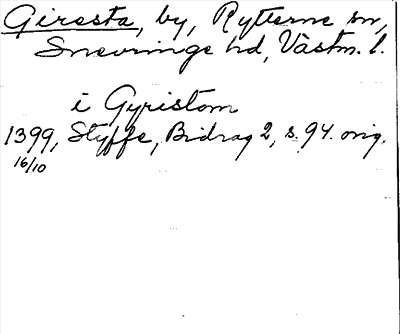 Giresta, by, Rytterne sn,
Snevringe hd, Västm. l.
i Gyristom
1399, Styffe, Bidrag 2, s. 94. orig.
16/10